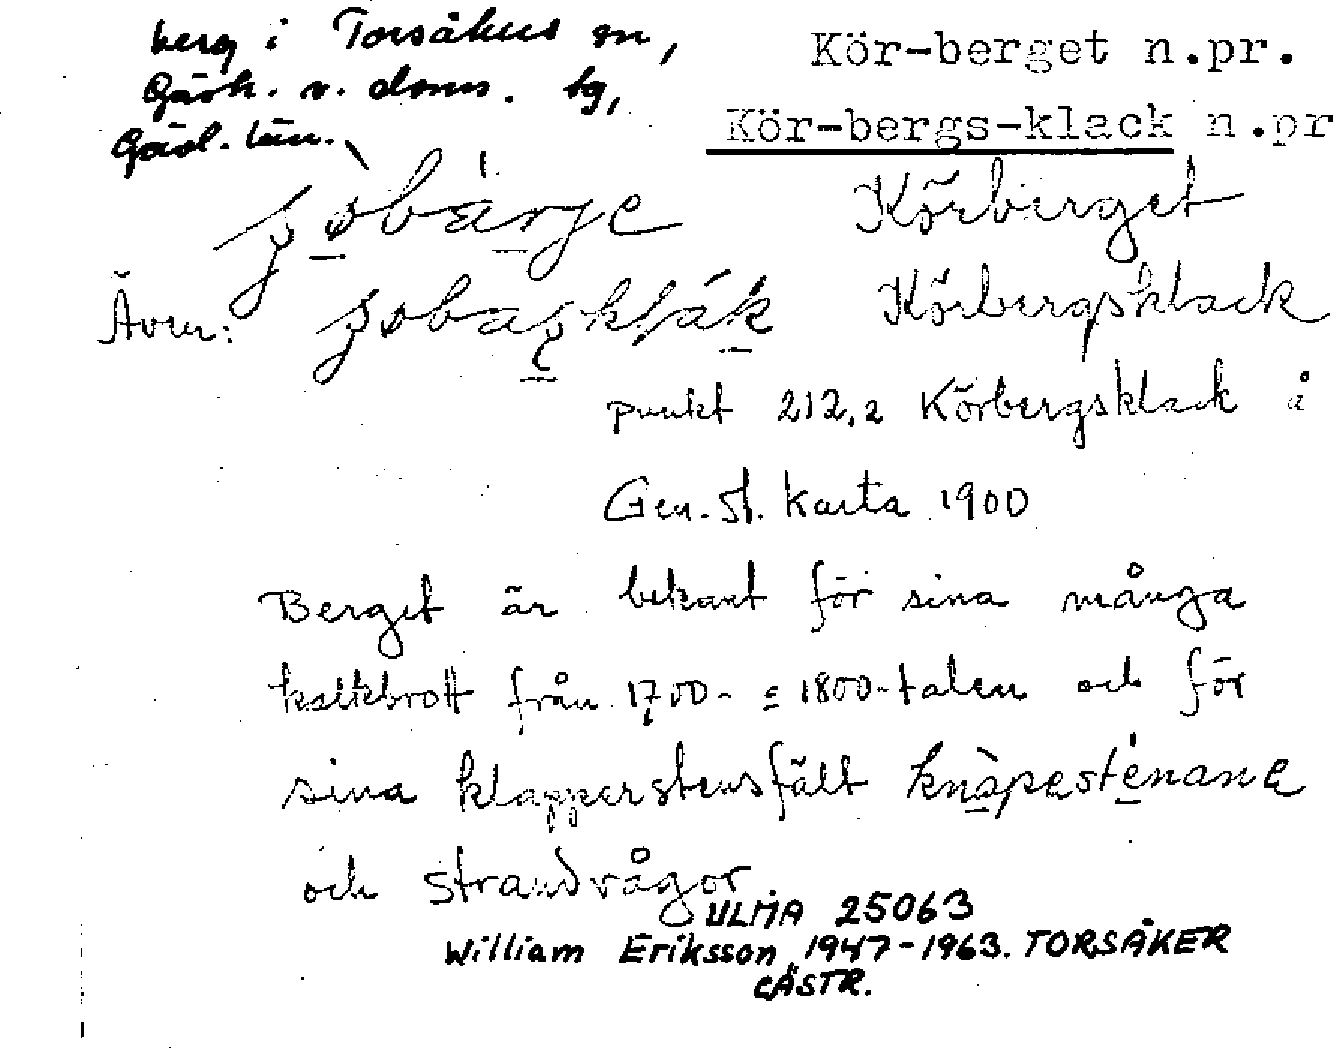 berg i Torsåkers sn,
Kör-berget n.pr.
Gästr. v. doms. tg,
Kör-bergs-klack n.pr
Gävl. län.
Körberget
Även: Körbergsklack
punkt 212,2 Körbergsklack å
Gen. st. karta 1900
Berget är bekant för sina många
kalkbrott från 1700- o 1800-talen och för
sina klapperstensfält knàpesténana
och strandvågor
ULMA 25063
William Eriksson 1947-1963. TORSÅKER
GÄSTR.